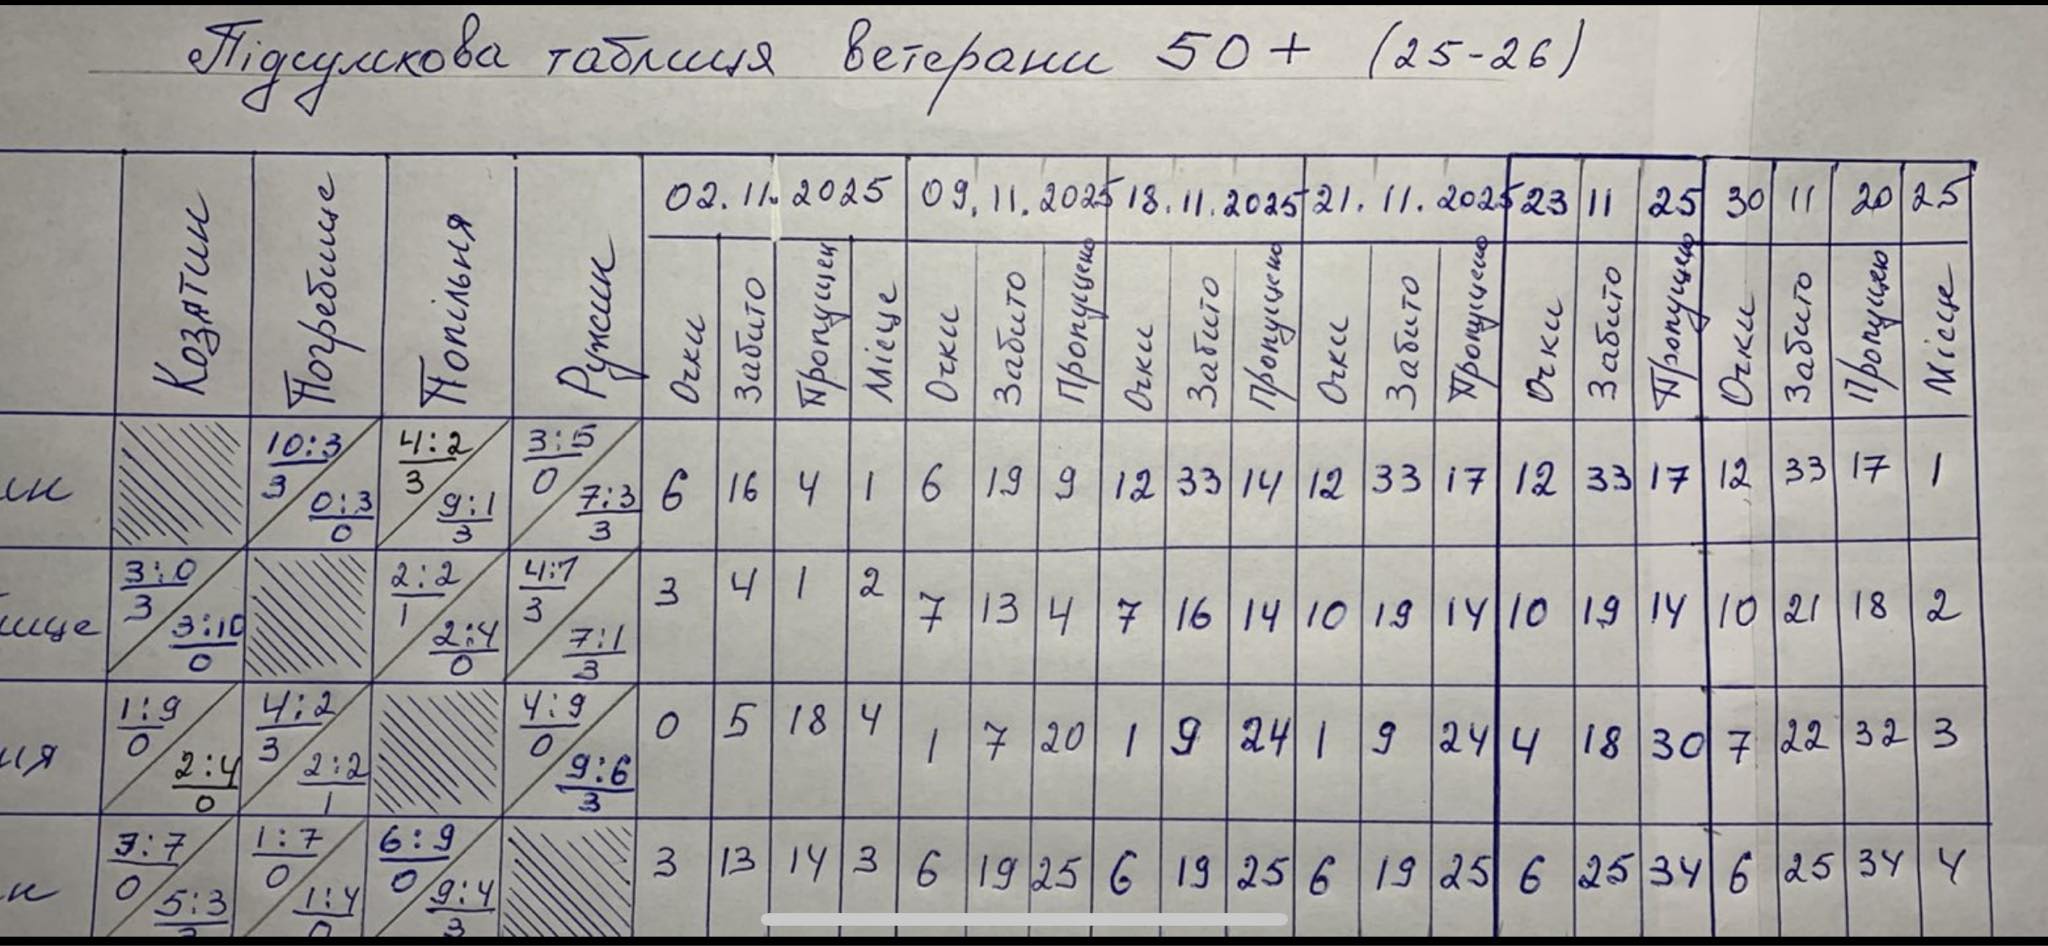 Підсумкова таблиця ветерани 50+ (25-26)
Козятин Погребище Попільня Ружин 02.11.2025 09.11.2025 18.11.2025 21.11.2025 23 11 25 30 11 20 25
Очки Забито Пропущен Місце Очки Забито Пропущено Очки Забито Пропущено Очки Забито Пропущено Очки Забито Пропущено Очки Забито Пропущено Місце
ин 10:3 3 0:3 0 4:2 3 9:1 3 3:5 0 7:3 3 6 16 4 1 6 19 9 12 33 14 12 33 17 12 33 17 12 33 17 1
ище 3:0 3 3:10 0 2:2 1 2:4 0 4:1 3 7:1 3 3 4 1 2 7 13 4 7 16 14 10 19 14 10 19 14 10 21 18 2
ня 1:9 0 2:4 0 4:2 3 2:2 1 4:9 0 9:6 3 0 5 18 4 1 7 20 1 9 24 1 9 24 4 18 30 7 22 32 3
н 3:7 0 5:3 3 1:7 0 1:4 0 6:9 0 9:4 3 3 13 14 3 6 19 25 6 19 25 6 19 25 6 25 34 6 25 34 4